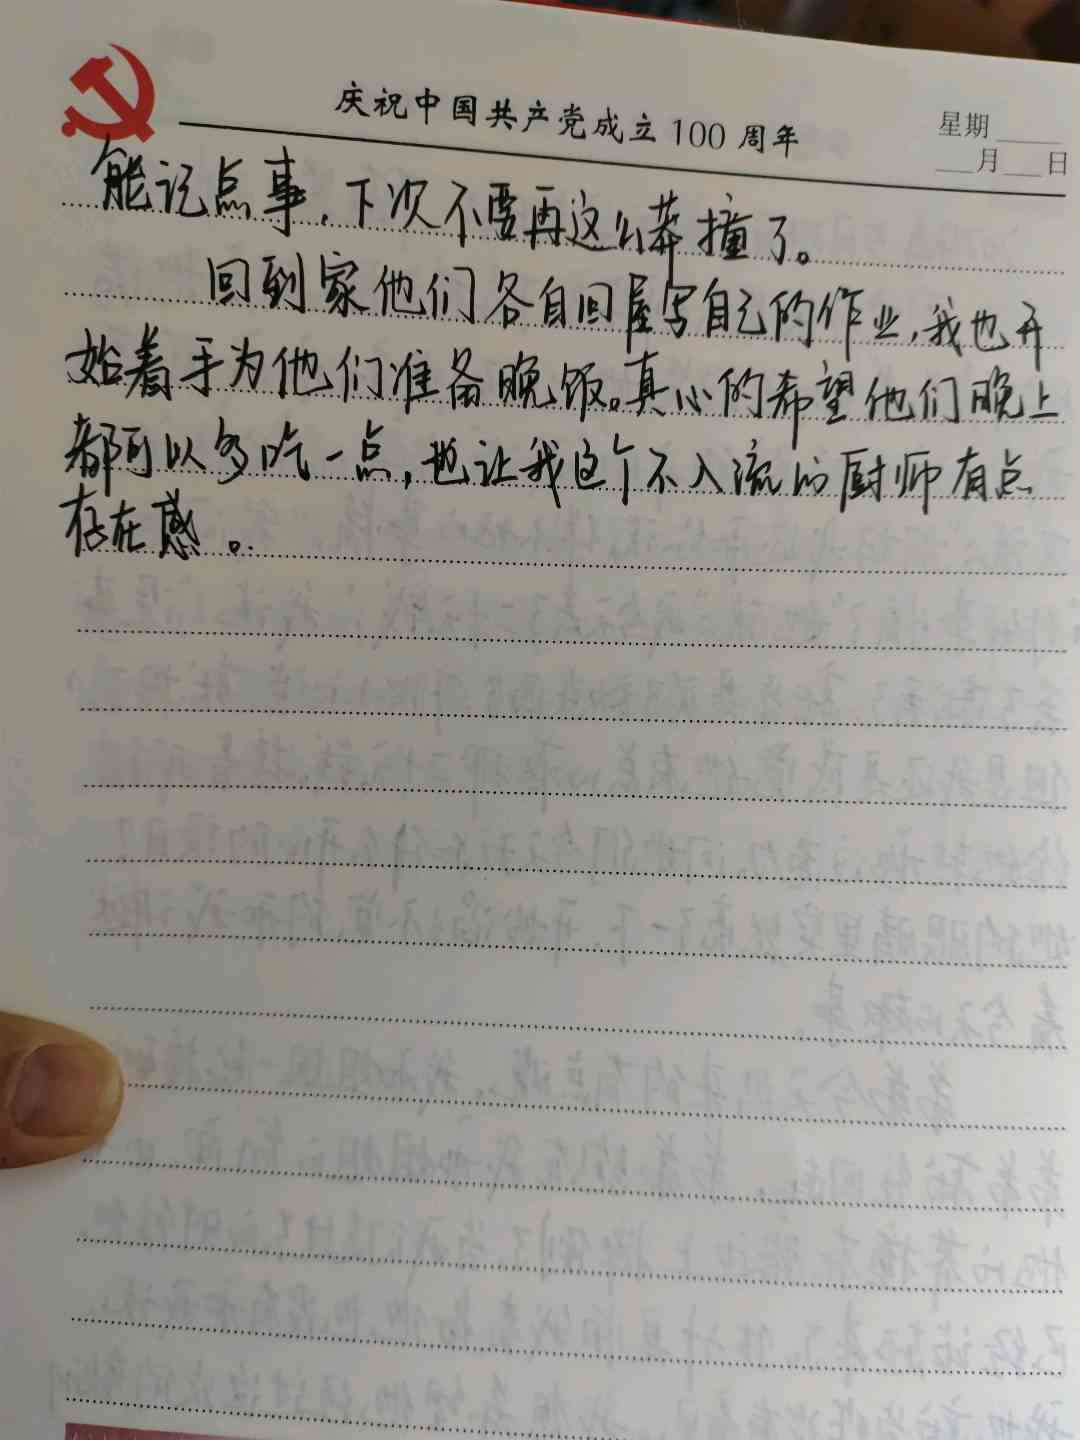 庆祝中国共产党成立100周年
星期
月 日
能记点事，下次不要再这么莽撞了。
回到家他们各自回屋写自己的作业，我也开
始着手为他们准备晚饭。真心的希望他们晚上
都可以多吃一点，也让我这个不入流的厨师有点
存在感。